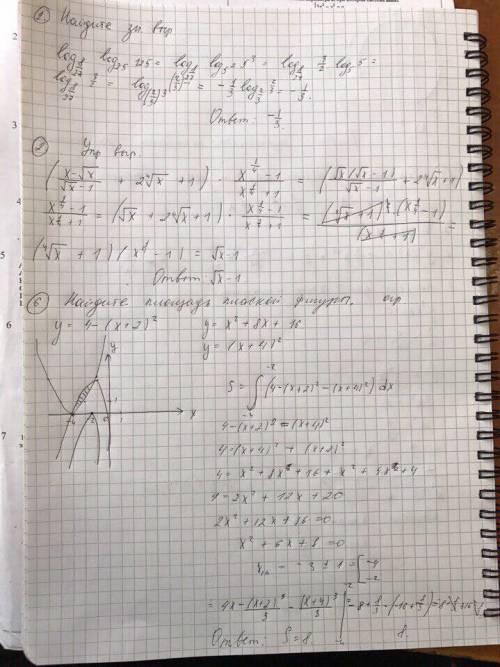 ① Найдите зн выр
log_{8/27} log_{25} 125 = log_{8/27} log_{5^2} 5^3 = log_{8/27} 3/2 log_5 5 =
log_{8/27} 3/2 = log_{(2/3)^3} (2/3)^{-1} = -1/3 log_{2/3} 2/3 = -1/3.
Ответ: -1/3.
Упр выр.
((x-√x)/(√x-1) + 2⁴√x + 1) · (x^{1/4} -1)/(x^{1/4}+1) = (√x(√x-1)/(√x-1) + 2⁴√x+1)
(x^{1/4}-1)/(x^{1/4}+1) = (√x + 2⁴√x+1) · (x^{1/4}-1)/(x^{1/4}+1) = (⁴√x+1)² · (x^{1/4}-1)/(x^{1/4}+1) =
(⁴√x + 1)(x^{1/4}-1) = √x-1
Ответ √x-1
⑥ Найдите площадь плоской фигуры, огр
y = 4-(x+2)²
y = x² + 8x + 16
y = (x+4)²
y
S = ∫_{-4}^{-2} (4-(x+2)² -(x+4)²) dx
-4 -2 0 1 x
4-(x+2)² = (x+4)²
4=(x+4)² + (x+2)²
4= x² + 8x + 16 + x² + 4x + 4
4=2x² + 12x + 20
2x² + 12x + 16 = 0
x² + 6x + 8 = 0
-3 ± 1 = [ -4
-2
= 4x - (x+2)³/3 - (x+4)³/3
Ответ: S = 8.
8.